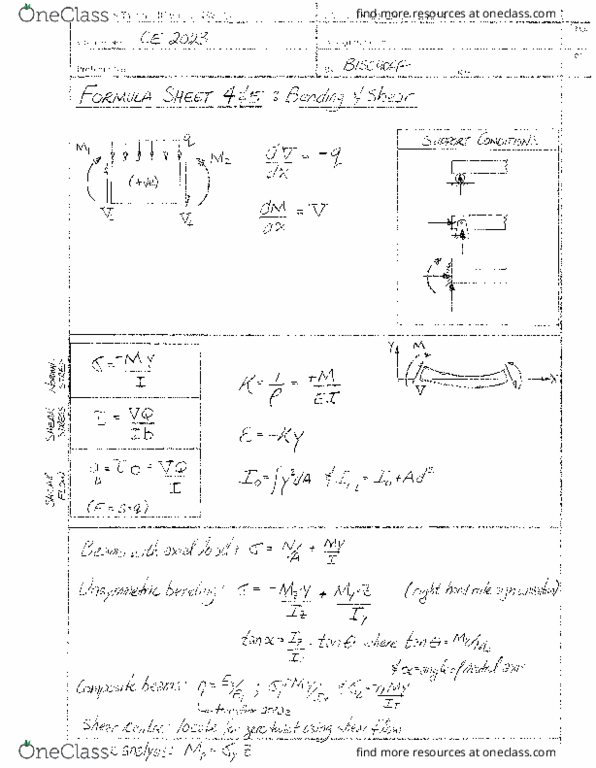 OneClass
find more resources at oneclass.com
CE 2023
BISCHOFF
FORMULA SHEET 4&5 : Bending & Shear
M₁ q M₂
(+ve)
V₁ V₂
dV/dx = -q
dM/dx = V
SUPPORT CONDITIONS
NORMAL STRESS
σ = -My/I
SHEAR STRESS
τ = VQ/Ib
SHEAR FLOW
q = τb = VQ/I
(F = s·q)
K = 1/ρ = +M/EI
ε = -Ky
I₀ = ∫y²dA & I = I₀ + Ad²
y M V x
Beams with axial load: σ = N/A + My/I
Unsymmetric bending: σ = -M_z y/I_z + M_y z/I_y (right hand rule sign convention)
tan α = I_z/I_y · tan θ where tan θ = M_y/M_z
& α = angle of neutral axis
Composite beams: n = E₂/E₁ ; σ₁ = -My/I_T & σ₂ = -nMy/I_T
transform area 2
Shear centre: locate for zero twist using shear flow
analysis: M_p = σ_y Z
OneClass
find more resources at oneclass.com